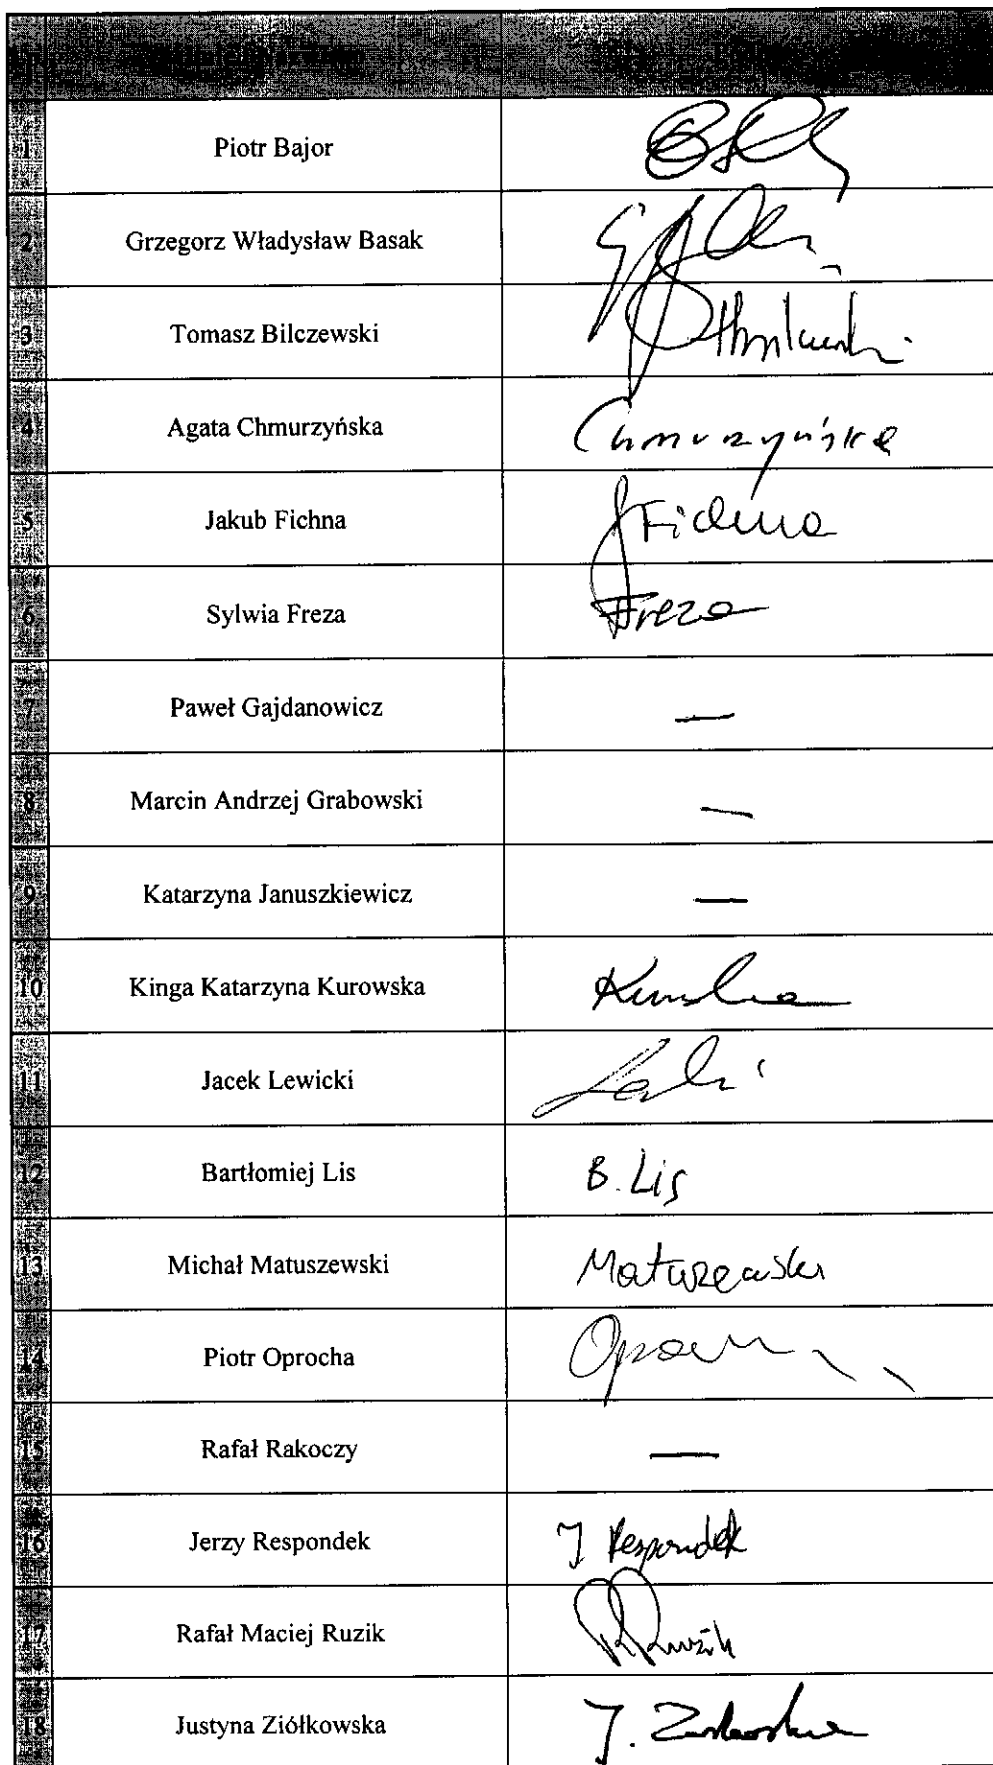 1 Piotr Bajor
2 Grzegorz Władysław Basak
3 Tomasz Bilczewski
4 Agata Chmurzyńska Chmurzyńska
5 Jakub Fichna JFichna
6 Sylwia Freza Freza
7 Paweł Gajdanowicz —
8 Marcin Andrzej Grabowski —
9 Katarzyna Januszkiewicz —
10 Kinga Katarzyna Kurowska
11 Jacek Lewicki
12 Bartłomiej Lis B. Lis
13 Michał Matuszewski Matuszewski
14 Piotr Oprocha
15 Rafał Rakoczy —
16 Jerzy Respondek J Respondek
17 Rafał Maciej Ruzik RRuzik
18 Justyna Ziółkowska